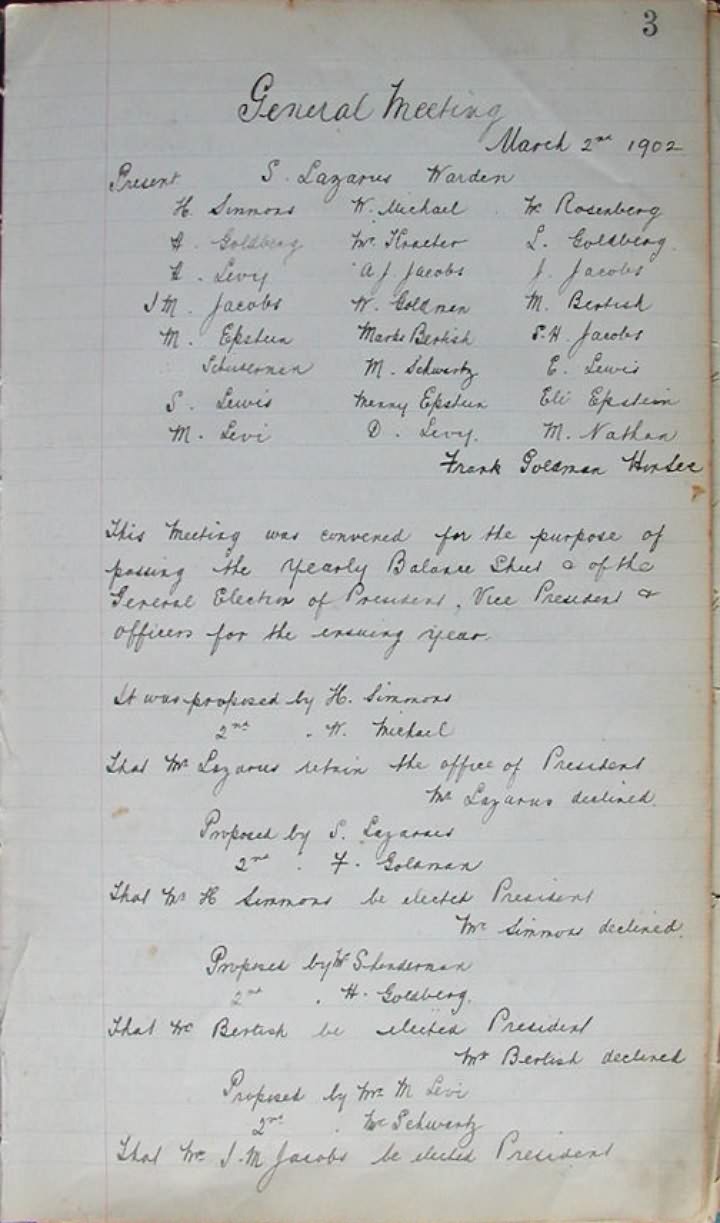 3
General Meeting
March 2nd 1902
Present S. Lazarus Warden
H. Simmons W. Michael Mr Rosenberg
H. Goldberg Mr. L. Goldberg.
H. Levy A J. Jacobs J. Jacobs
I M. Jacobs W. Goldman M. Bertish
M. Epstein Marks Bertish P. H. Jacobs
M. Schwartz E. Lewis
S. Lewis Epstein Eli Epstein
M. Levi D. Levy. M. Nathan
Frank Goldman
This Meeting was convened for the purpose of
passing the Yearly Balance Sheet & of the
General Election of President, Vice President &
Officers for the ensuing year.
It was proposed by H. Simmons
2nd " W. Michael
That Mr Lazarus retain the office of President
Mr Lazarus declined.
Proposed by S. Lazarus
2nd " F. Goldman
That Mr H Simmons be elected President
Mr Simmons declined.
Proposed by Mr
2nd " H. Goldberg.
That Mr Bertish be elected President
Mr Bertish declined
Proposed by Mr. M Levi
2nd " Mr Schwartz
That Mr I. M Jacobs be elected President